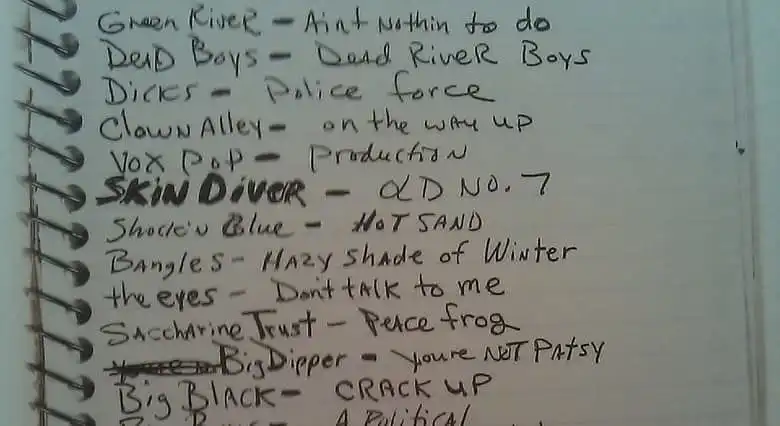 Green River - Aint Nothin to do
Dead Boys - Dead River Boys
Dicks - Police force
Clown Alley - on the way up
Vox Pop - Production
SKIN DIVER - OLD NO. 7
Shock'n Blue - HOT SAND
Bangles - Hazy Shade of Winter
the eyes - Don't talk to me
Saccharine Trust - Peace frog
Big Dipper - youre NOT PATSY
Big BLACK - CRACK UP
A Political